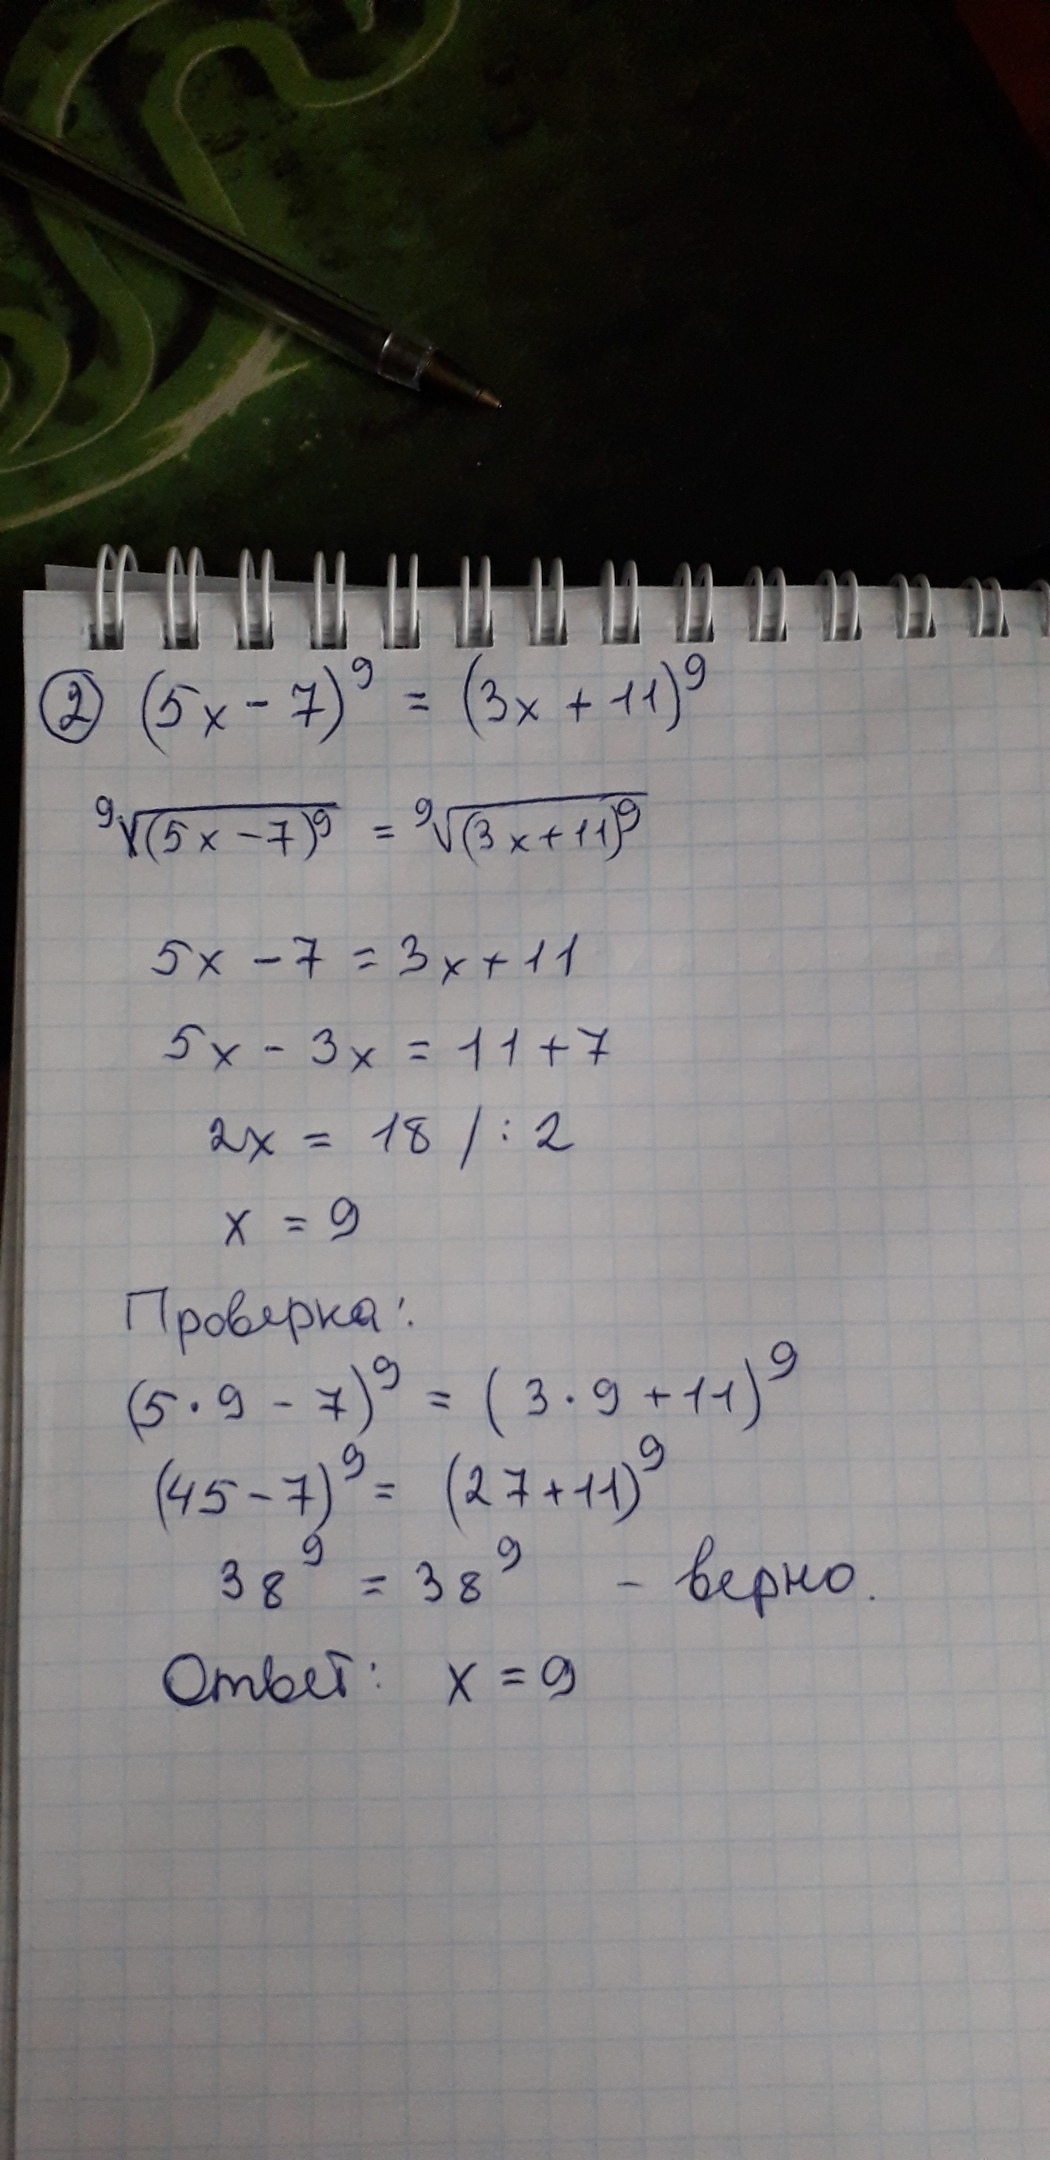 ② (5x - 7)⁹ = (3x + 11)⁹
⁹√(5x - 7)⁹ = ⁹√(3x + 11)⁹
5x - 7 = 3x + 11
5x - 3x = 11 + 7
2x = 18 / : 2
x = 9
Проверка:
(5 · 9 - 7)⁹ = (3 · 9 + 11)⁹
(45 - 7)⁹ = (27 + 11)⁹
38⁹ = 38⁹ - верно.
Ответ: x = 9